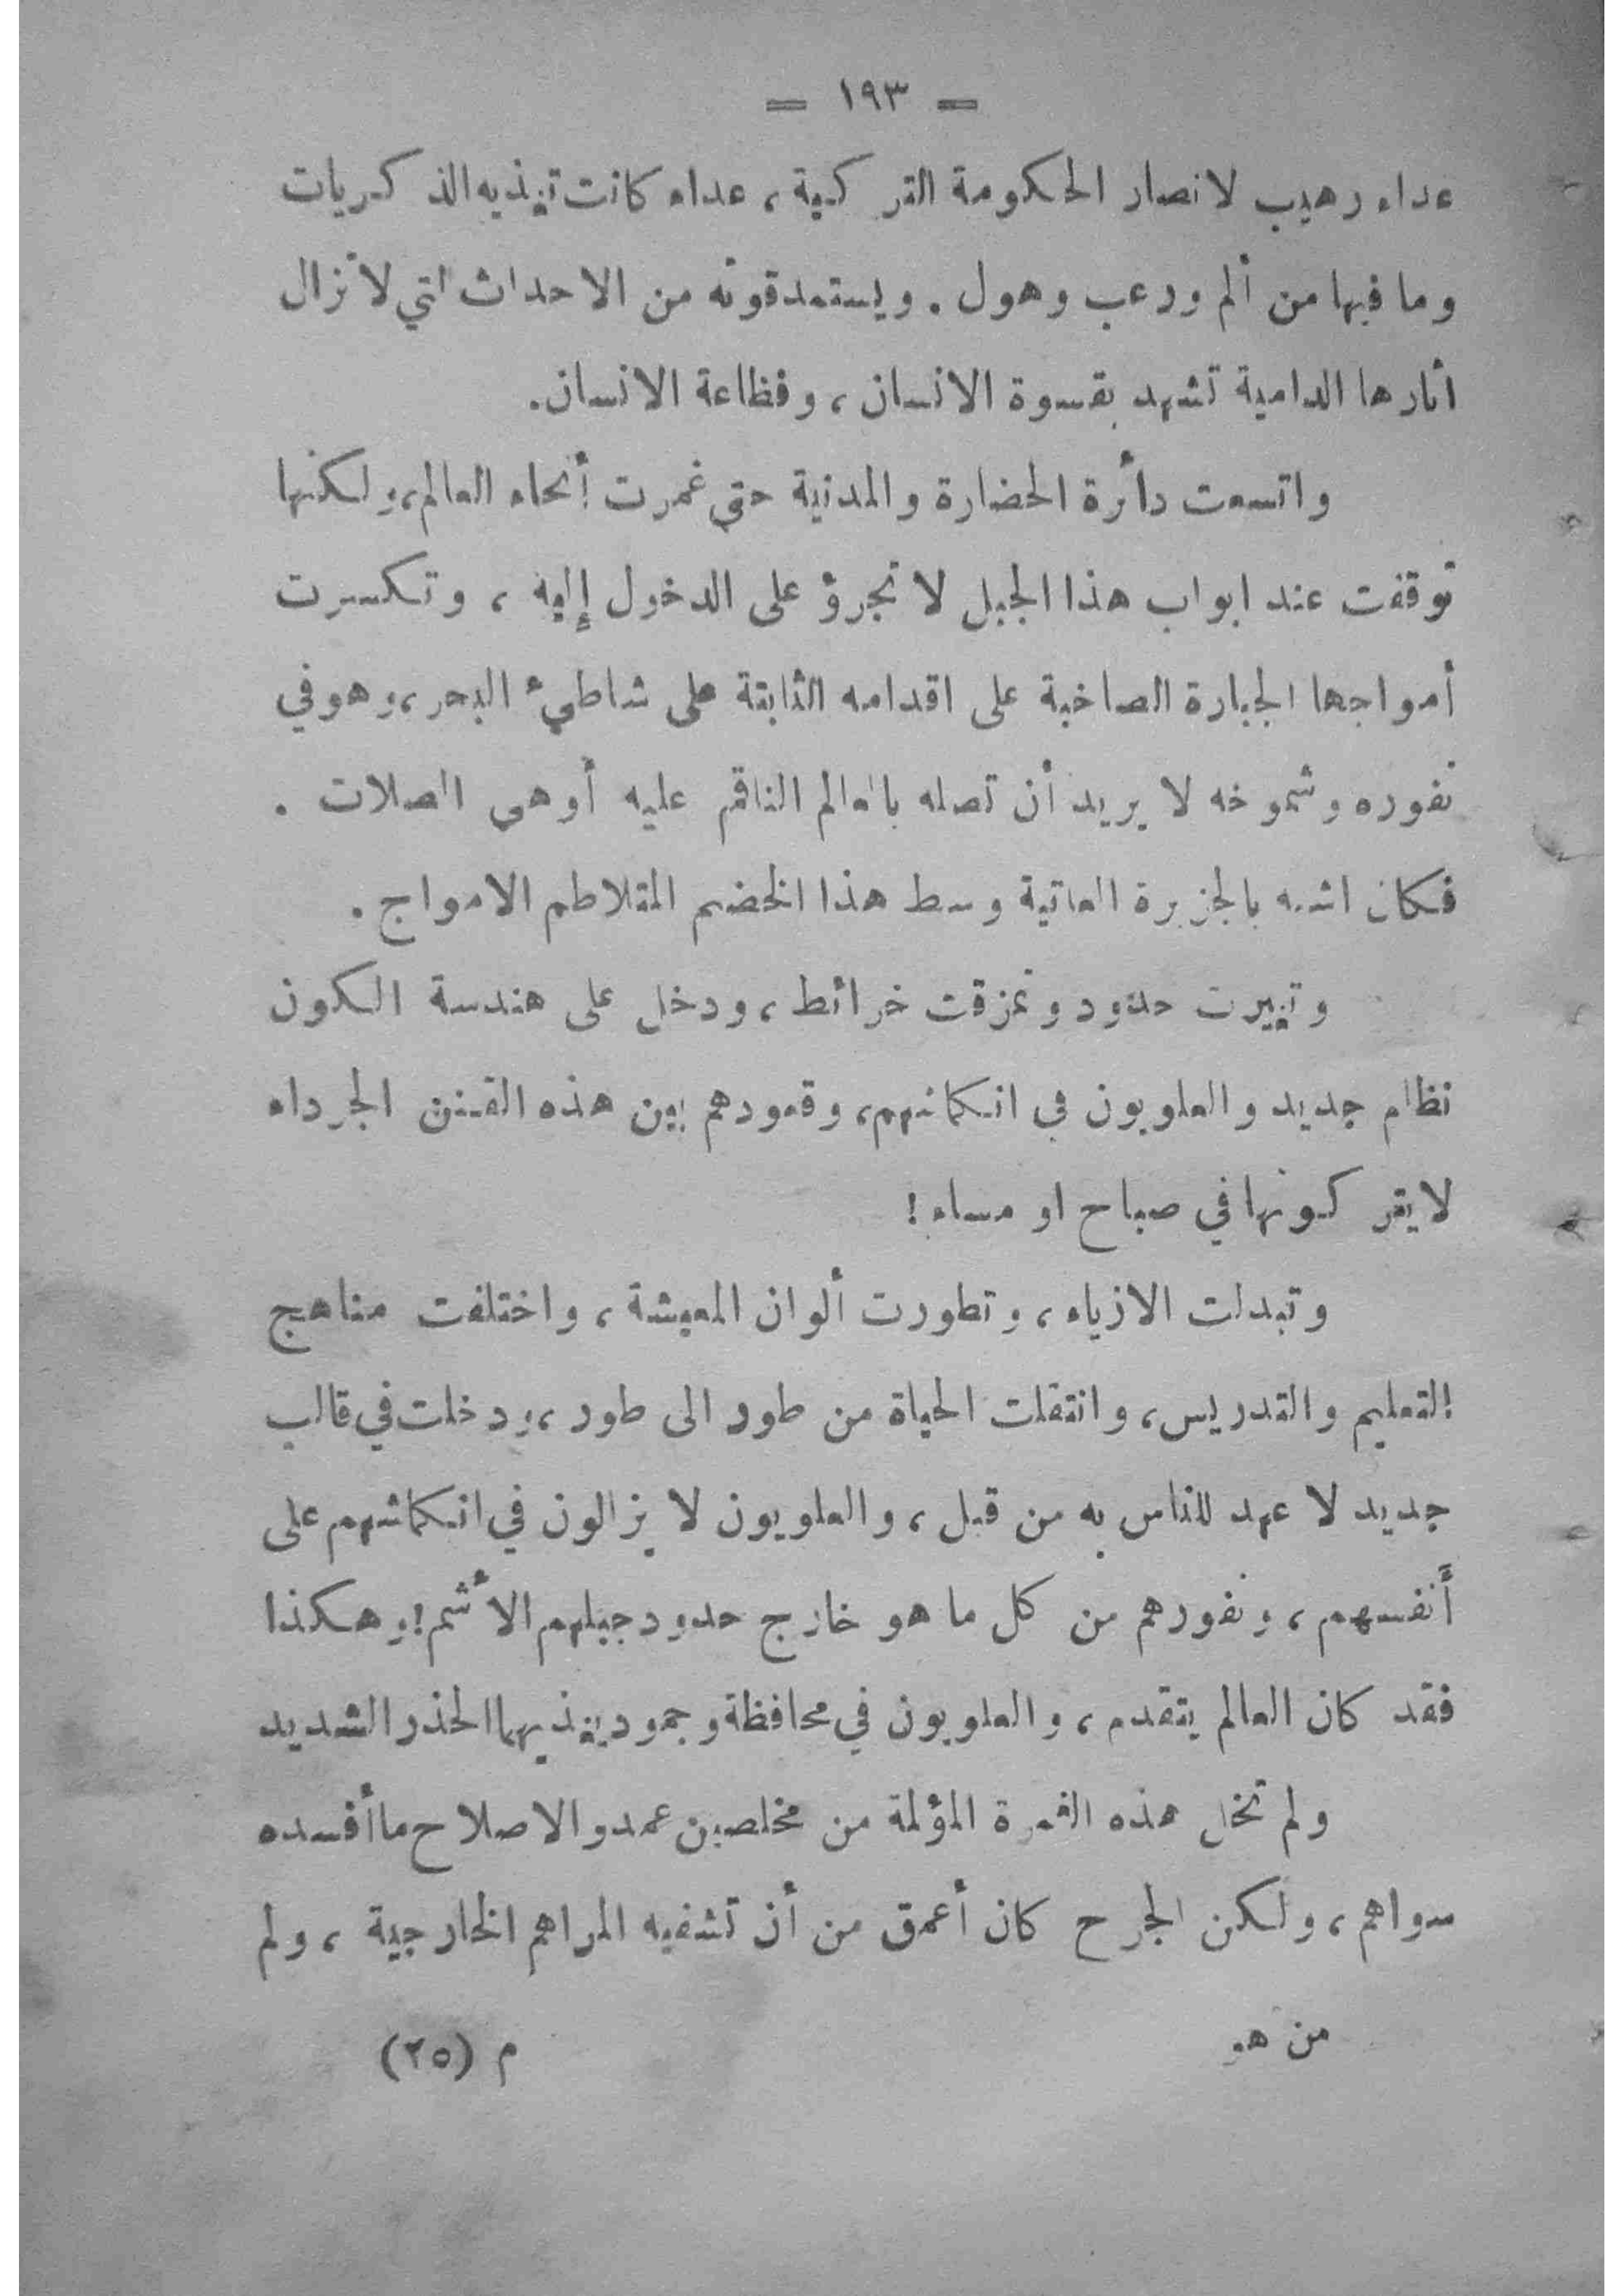 = ١٩٣ =
عداء رهيب لانصار الحكومة التركية ، عداء كانت تغذيه الذكريات
وما فيها من ألم ورعب وهول . ويستمد قوته من الاحداث التي لا تزال
اثارها الدامية تشهد بقسوة الانسان ، وفظاعة الانسان.
واتسعت دائرة الحضارة والمدنية حتى غمرت أنحاء العالم ، ولكنها
توقفت عند ابواب هذا الجبل لا تجرؤ على الدخول إليه ، وتكسرت
أمواجها الجبارة الصاخبة على اقدامه الثابتة على شاطئ البحر ، وهو في
نفوره وشموخه لا يريد أن تصله بالعالم الناقم عليه أوهى الصلات .
فكان اشبه بالجزيرة العاتية وسط هذا الخضم المتلاطم الامواج .
وتغيرت حدود وتمزقت خرائط ، ودخل على هندسة الكون
نظام جديد والعلويون في انكماشهم ، وقعودهم بين هذه القنن الجرداء
لا يتركونها في صباح او مساء !
وتبدلت الازياء ، وتطورت ألوان المعيشة ، واختلفت مناهج
التعليم والتدريس ، وانتقلت الحياة من طور الى طور ، ودخلت في قالب
جديد لا عهد للناس به من قبل ، والعلويون لا يزالون في انكماشهم على
أنفسهم ، ونفورهم من كل ما هو خارج حدود جبلهم الأشم ! وهكذا
فقد كان العالم يتقدم ، والعلويون في محافظة وجمود يغذيهما الحذر الشديد
ولم تخل هذه الفترة المؤلمة من مخلصين عمدوا لاصلاح ما أفسده
سواهم ، ولكن الجرح كان أعمق من أن تشفيه المراهم الخارجية ، ولم
من هو
م (٢٥)